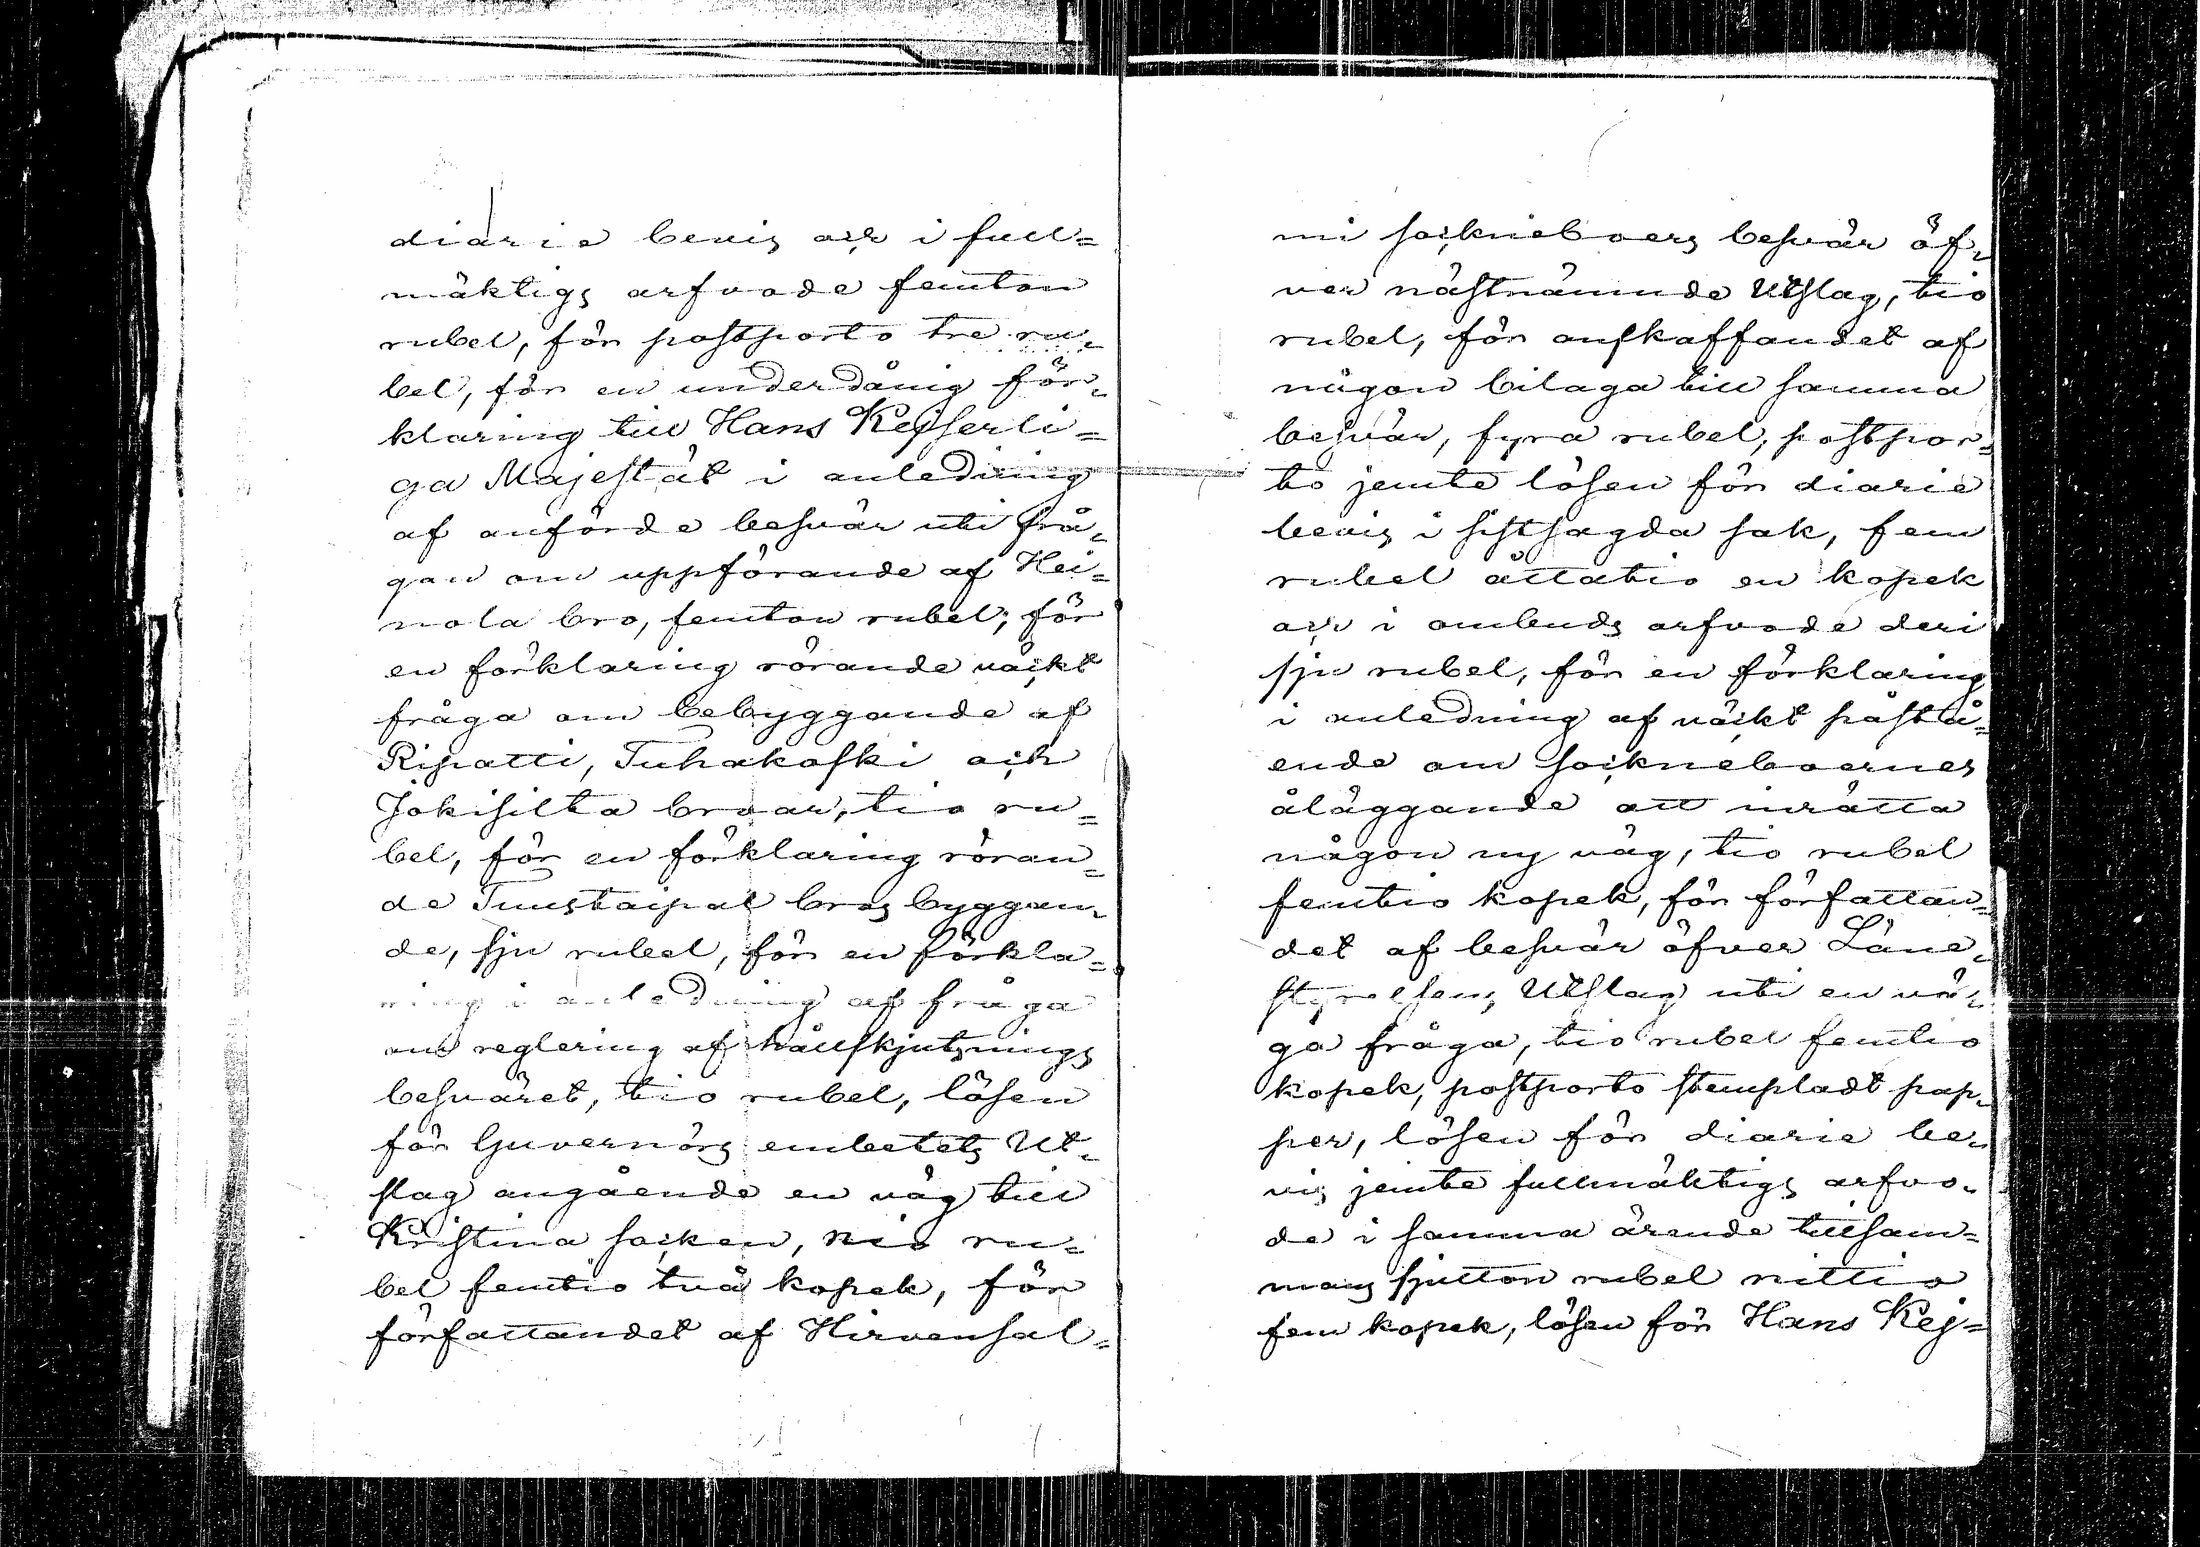 diarie bevis och i full=
mäktigs arfvode femton
rubel, för postporto tre ru=
bel, för en underdånig för=
klaring till Hans Kejserli=
ga Majestät i anledning
af anförde besvär uti frå=
gan om uppförande af Hei=
nola bro, femton rubel; för
en förklaring rörande väckt
fråga om bebyggande af
Ripatti, Tuhakoski och
Jokisilta broar, tio ru=
bel, för en förklaring röran=
de Tuustaipal bros byggan=
de, sju rubel, för en förkla=
ring i anledning af fråga
om reglering af hållskjutsnings
besväret, tio rubel, lösen
för Guvernörs embetets Ut=
slag angående en väg till
Kristina socken, nio ru=
bel femtio två kopek, för
författandet af Hirvensal=
mi sockneboers besvär öf=
ver nästnämnde Utslag, tio
rubel, för anskaffandet af
någon bilaga till samma
besvär, fyra rubel, postpor=
to jemte lösen för diarie
bevis i sistsagda sak, fem
rubel åttatio en kopek
och i ombuds arfvode deri
sju rubel, för en förklaring
i anledning af väckt påstå=
ende om sockneboernes
åläggande att inrätta
någon ny väg, tio rubel
femtio kopek, för författan=
det af besvär öfver Läne=
styrelsens Utslag uti en vä=
ga fråga, tio rubel femtio
kopek, postporto stempladt pap=
per, lösen för diarie be=
vis jemte fullmäktigs arfvo=
de i samma ärende tillsam=
mans sjutton rubel nittio
fem kopek, lösen för Hans Kej=